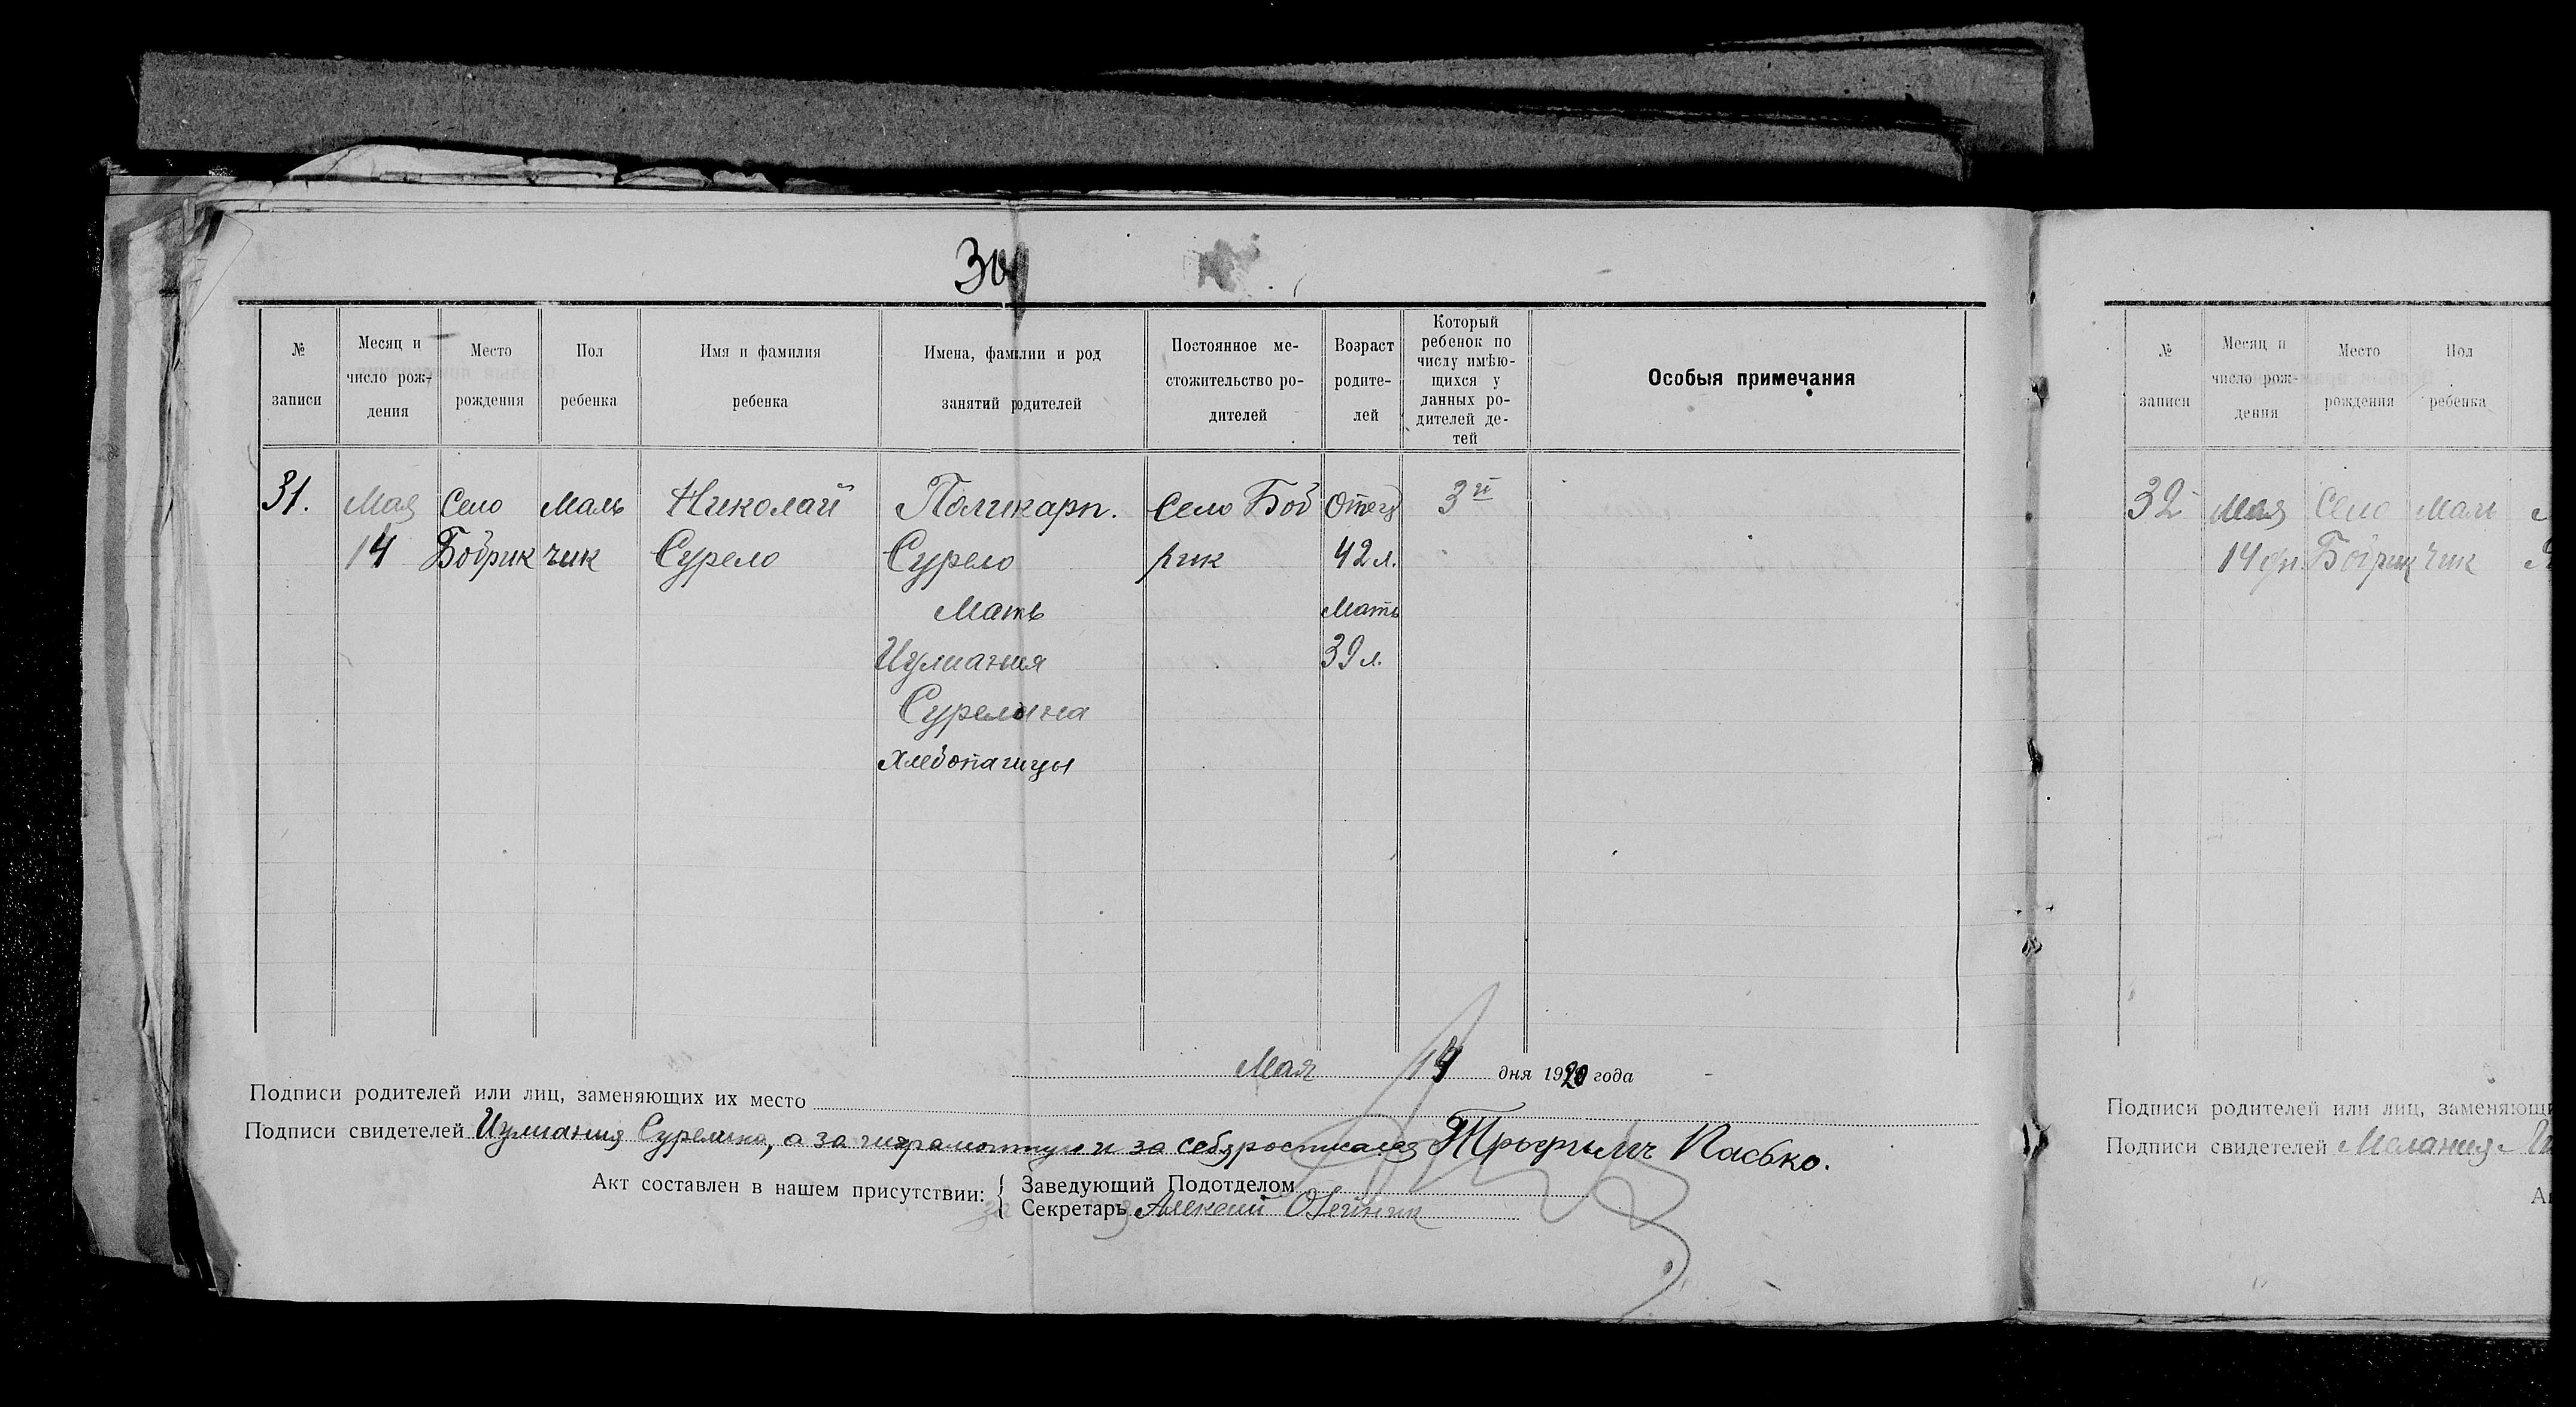 30
№ записи
Месяц и число рождения
Место рождения
Пол ребенка
Имя и фамилия ребенка
Имена, фамилии и род занятий родителей
Постоянное местожительство родителей
Возраст родителей
Который ребенок по числу имѣющихся у данных родителей детей
Особыя примечания
31. Мая Село Маль Николай Поликарп. Село Боб Отец 3й
14 Бобрик чик Сурело Сурело рик 42 л.
Мать Мать
Иулиания 39 л.
Сурелина
Хлебопашцы
Мая 14 дня 1920 года
Подписи родителей или лиц, заменяющих их место
Подписи свидетелей Иулиания Сурелина, а за неграмотную и за себя росписался Трофим Пасько.
Акт составлен в нашем присутствии:
Заведующий Подотделом
Секретарь Алексей Олейник
№ записи
Месяц и число рождения
Место рождения
Пол ребенка
32 Мая Село Маль
14 дн. Бобрик чик
Подписи родителей или лиц, заменяющи
Подписи свидетелей Мелания